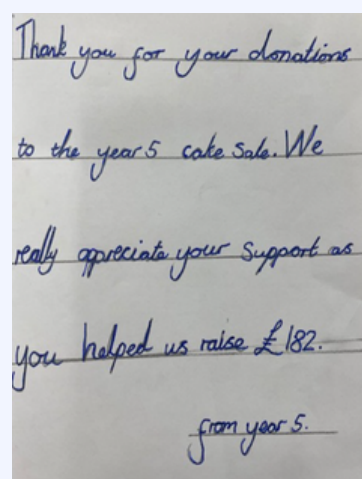 Thank you for your donations
to the year 5 cake sale. We
really appreciate your support as
you helped us raise £182.
from year 5.